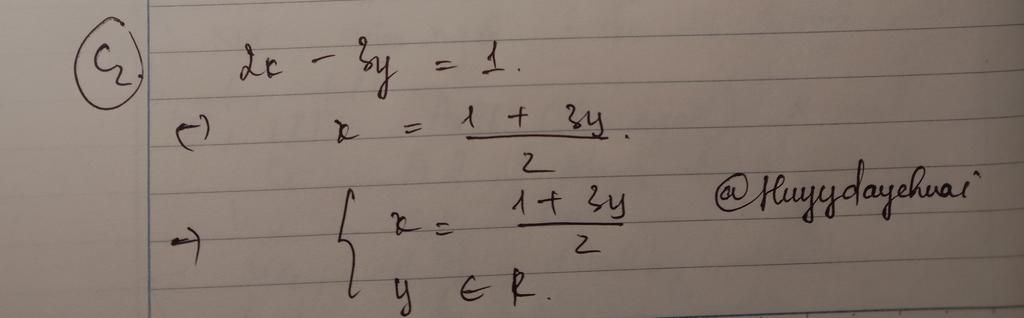 C₂
2x - 3y = 1.
(-) x = \frac{1 + 3y}{2}.
-) { x = \frac{1 + 3y}{2}
y ∈ R.
@Huyydaychuai